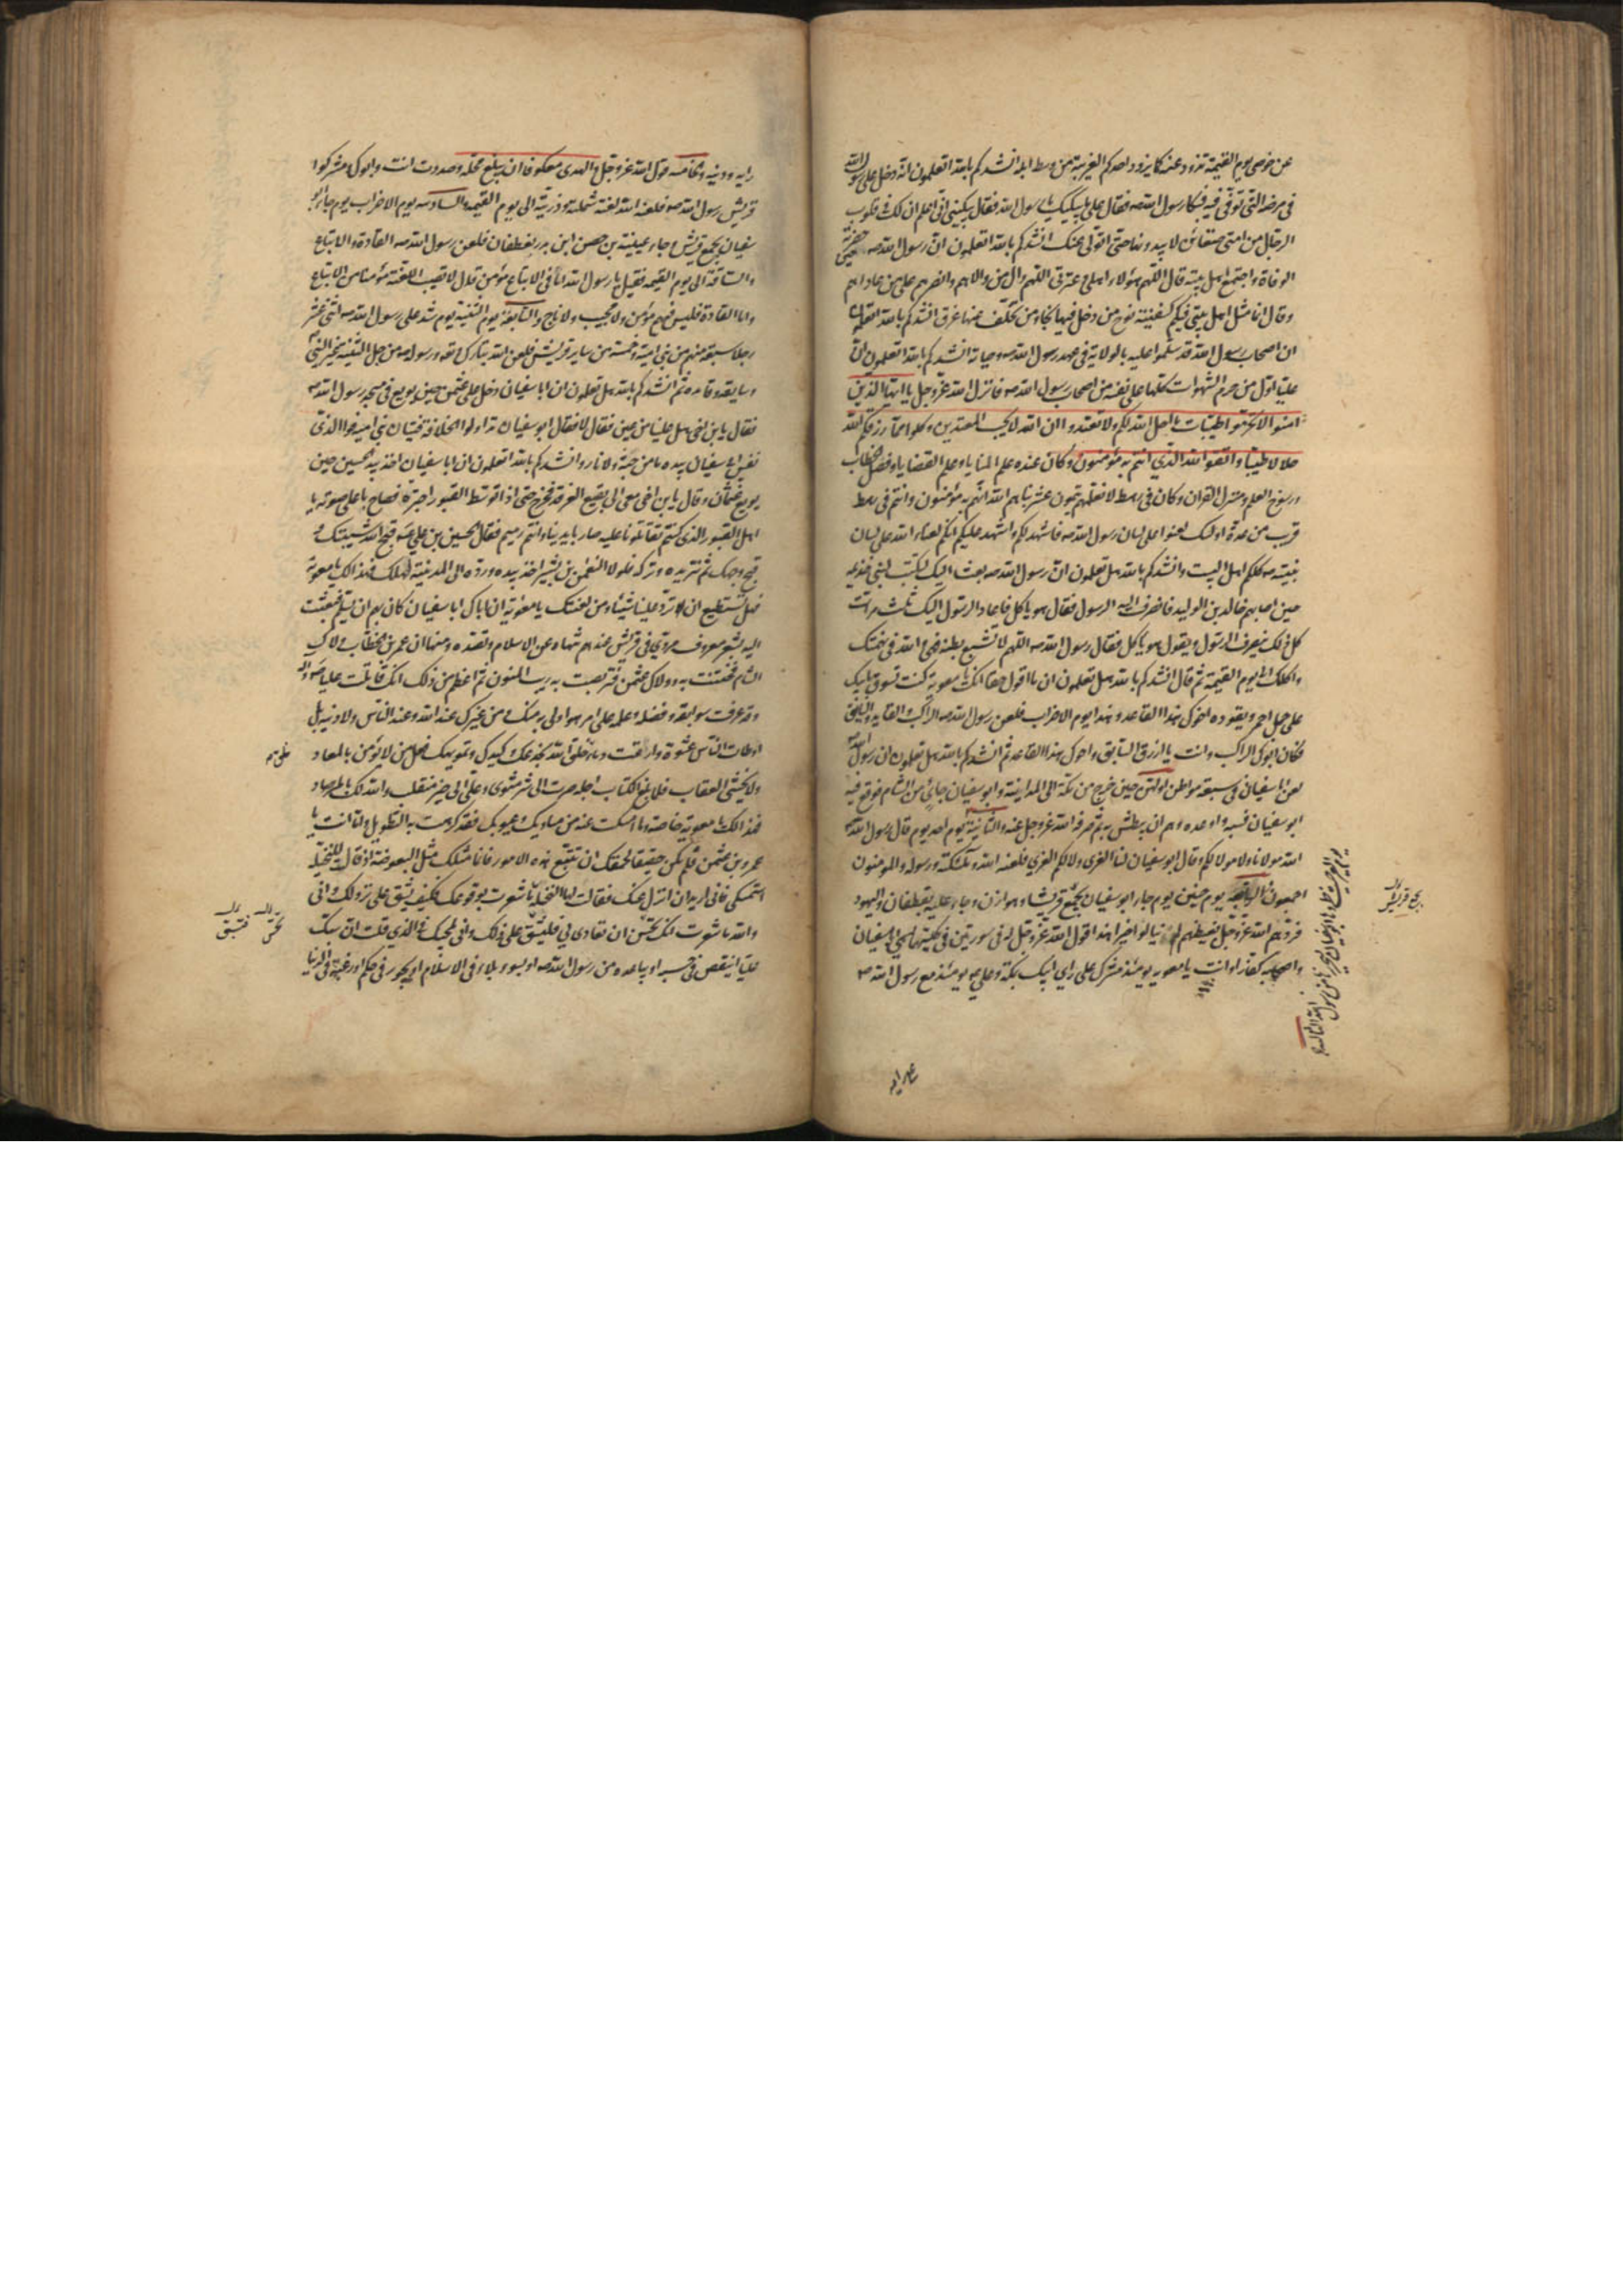 عن حوضي يوم القيمة تذود عنه كما يذود احدكم الغريبة من وسط ابله انشدكم بالله اتعلمون انه دخل على رسول الله
في مرضه الذي توفي فيه فبكا رسول الله صم فقال علي ما يبكيك يا رسول الله فقال يبكيني اني اعلم ان لك في قلوب
الرجال من امتي ضغائن لا يبدونها حتى اتولى عنك انشدكم بالله اتعلمون ان رسول الله صم حضرته
الوفاة واجتمع اهل بيته قال اللهم هؤلاء اهلي وعترتي اللهم وال من والاهم وانصرهم على من عاداهم
وقال انما مثل اهل بيتي فيكم كسفينة نوح من دخل فيها نجا ومن تخلف عنها غرق انشدكم بالله اتعلمون
ان اصحاب رسول الله قد سلموا عليه بالولاية في عهد رسول الله صم وحياته انشدكم بالله اتعلمون ان
عليا اول من حرم الشهوات كلها على نفسه من اصحاب رسول الله صم فانزل الله عز وجل يا ايها الذين
امنوا لا تحرموا طيبات ما احل الله لكم ولا تعتدوا ان الله لا يحب المعتدين وكلوا مما رزقكم الله
حلالا طيبا واتقوا الله الذي انتم به مؤمنون وكان عنده علم المنايا وعلم القضايا وفصل الخطاب
ورسوخ العلم ومنزل القران وكان في رهط لا نعلمهم يتمون عشرة نبأهم الله انهم به مؤمنون وانتم في رهط
قريب من عدة اولئك لعنوا على لسان رسول الله صم فاشهد لكم واشهد عليكم انكم لعناء الله على لسان
نبيه صم كلكم اهل البيت وانشدكم بالله هل تعلمون ان رسول الله صم بعث اليك لتكتب لبني خزيمه
حين اصابهم خالد بن الوليد فانصرف اليه الرسول فقال هو ياكل فاعاد الرسول اليك ثلث مرات
كل ذلك ينصرف الرسول ويقول هو ياكل فقال رسول الله صم اللهم لا تشبع بطنه فهي والله في نهمتك
واكلك الى يوم القيمة ثم قال انشدكم بالله هل تعلمون ان ما اقول حقا انك يا معوية كنت تسوق بابيك
على جمل احمر ويقوده اخوك هذا القاعد وهذا يوم الاحزاب فلعن رسول الله صم الراكب والقايد والسايق
فكان ابوك الراكب وانت يا ازرق السايق واخوك هذا القاعد ثم انشدكم بالله هل تعلمون ان رسول الله صم
لعن ابا سفيان في سبعة مواطن اولهن حين خرج من مكة الى المدينة وابو سفيان جائي من الشام فوقع فيه
ابو سفيان فسبه واوعده وهم ان يبطش به ثم صرفه الله عز وجل عنه والثانية يوم احد يوم قال رسول الله صم
الله مولانا ولا مولى لكم وقال ابو سفيان لنا العزى ولا لكم العزى فلعنه الله وملئكته ورسوله والمؤمنون
اجمعون والرابعة يوم حنين يوم جاء ابو سفيان بجمع قريش وهوازن وجاء عيينة بغطفان واليهود
فردهم الله عز وجل بغيظهم لم ينالوا خيرا هذا قول الله عز وجل له في سورتين في كلتيهما يسمي ابا سفيان
واصحابه كفارا وانت يا معويه يومئذ مشرك على راي ابيك بمكة وعلي يومئذ مع رسول الله صم
على رايه
رايه ودينه والخامسة قول الله عز وجل والهدى معكوفا ان يبلغ محله وصددت انت وابوك ومشركوا
قريش رسول الله صم فلعنه الله لعنة شملته وذريته الى يوم القيمة والسادسة يوم الاحزاب يوم جاء ابو
سفيان بجمع قريش وجاء عيينة بن حصن ابن بدر بغطفان فلعن رسول الله صم القادة والاتباع
والساقة الى يوم القيمة فقيل يا رسول الله اما في الاتباع مؤمن قال لا تصيب اللعنة مؤمنا من الاتباع
واما القادة فليس فيهم مؤمن ولا مجيب ولا ناج والسابعة يوم الثنية يوم شد على رسول الله صم اثنى عشر
رجلا سبعة منهم من بني امية وخمسة من ساير قريش فلعن الله تبارك وتعالى ورسوله من حل الثنية غير النبي
وسايقه وقائده ثم انشدكم بالله هل تعلمون ان ابا سفيان دخل على عثمن حين بويع في مسجد رسول الله صم
فقال يا بن اخي هل علينا من عين فقال لا فقال ابو سفيان تداولوا الخلافة فتيان بني امية فوالذي
نفس ابي سفيان بيده ما من جنة ولا نار وانشدكم بالله اتعلمون ان ابا سفيان اخذ بيد الحسين حين
بويع عثمان وقال يا بن اخي اخرج معي الى بقيع الغرقد فخرج حتى اذا توسط القبور اجتره فصاح باعلى صوته يا
اهل القبور الذي كنتم تقاتلونا عليه صار بايدينا وانتم رميم فقال الحسين بن علي قبح الله شيبتك و
قبح وجهك ثم نتر يده وتركه فلولا النعمن بن بشير اخذ بيده ورده الى المدينة لهلك فهذا لك يا معوية
فهل تستطيع ان ترد علينا شيئا ومن لعنتك يا معوية ان اباك ابا سفيان كان يهم ان يسلم فبعثت
اليه بشعر معروف مروي في قريش عندهم تنهاه عن الاسلام وتصده ومنها ان عمر بن الخطاب ولاك
الشام فخنت به وولاك عثمن فتربصت به ريب المنون ثم اعظم من ذلك انك قاتلت عليا
وقد عرفت سوابقه وفضله وعلمه على امر هو اولى به منك ومن غيرك عند الله وعند الناس ولا دنية بل
اوطات الناس عشوة وارقت دماء خلق الله بخدعك وكيدك وتمويهك فعل من لا يؤمن بالمعاد
ولا يخشى العقاب فلما بلغ الكتاب اجله صرت الى شر مثوى وعلي الى خير منقلب والله لك بالمرصاد
فهذا لك يا معوية خاصة وما امسكت عنه من مساويك وعيوبك فقد كرهت به التطويل واما انت يا
عمرو بن عثمن فلم تكن حقيقا لحمقك ان تتبع هذه الامور فانما مثلك مثل البعوضة اذ قال للنخلة
استمسكي فاني اريد ان انزل عنك فقالت لها النخلة ما شعرت بوقوعك فكيف يشق علي نزولك واني
والله ما شعرت انك تحسن ان تعادي لي فيشق علي ذلك واني لمجيبك في الذي قلت ان سبك
عليا انقص في حسبه او تباعده من رسول الله صم او بسوء بلاء في الاسلام او بجور في حكم او رغبة في الدنيا